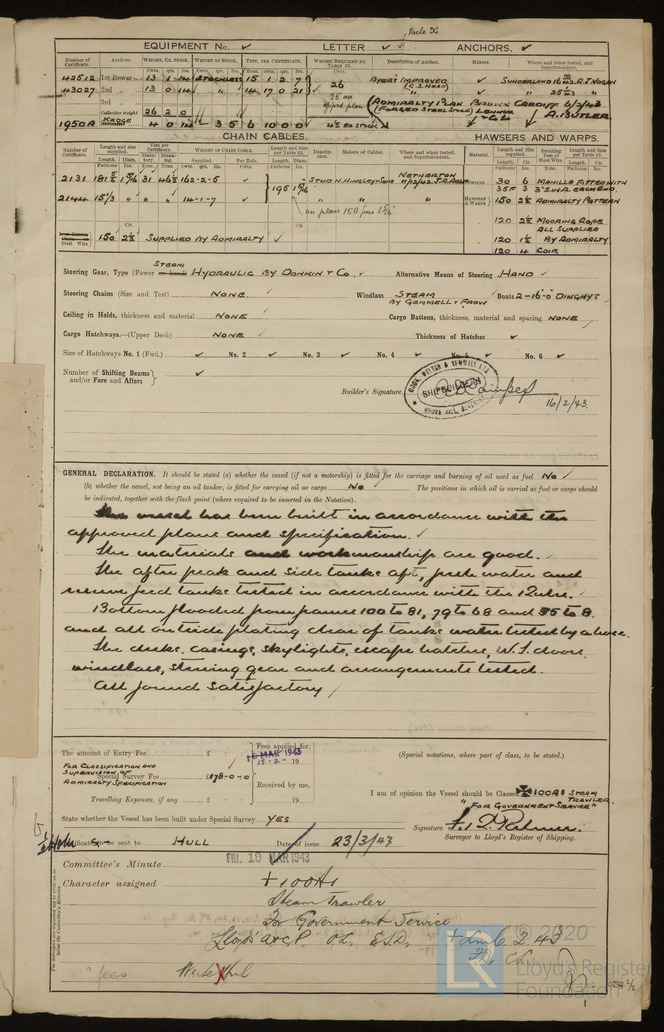 Rule DG
EQUIPMENT No. LETTER ANCHORS.
Number of Certificate. Anchors WEIGHT, EX. STOCK. WEIGHT OF STOCK. TEST, PER CERTIFICATE. WEIGHT REQUIRED BY TABLE 53. Description of Anchor. Makers. Where and when tested, and Superintendent.
Cwts. qrs. lbs.
42512 1st Bower 13 0 14 STOCKLESS 15 1 2 7 26 BYERS IMPROVED SUNDERLAND
43027 2nd 13 0 14 14 17 0 21
3rd
Collective weight 26 2 0 CARDIFF 6/2/43
1950A KEDGE 4 0 14 3 5 6 10 0 0 4½ EX STOCK A. BUTLER
CHAIN CABLES. HAWSERS AND WARPS.
Number of Certificate. Length and size supplied. Test per Certificate. WEIGHT OF CHAIN CABLE. Length and size per Table 53. Description. Makers of Cables. Where and when tested, and Superintendent. Material. Length and size supplied. Breaking Test of Steel Wire. Length and size per Table 53.
2131 162-2-5 STUD N. HINGLEY & SONS NETHERTON 30 6 MANILLA FITTED WITH
35F 3 3" S.W.R. EACH END.
2144 15⅓ " " " 14-1-7 195 150 2½ ADMIRALTY PATTERN
120 2½ MOORING ROPE
ALL SUPPLIED
Steel Wire 150 2½ SUPPLIED BY ADMIRALTY 120 1½ BY ADMIRALTY
120 4 COIR
Steering Gear, Type (Power or hand) STEAM HYDRAULIC BY DONKIN & CO. Alternative Means of Steering HAND
Steering Chains (Size and Test) NONE Windlass STEAM BY GEMMELL & FROW Boats 2-16'-0 DINGHYS
Ceiling in Holds, thickness and material NONE Cargo Battens, thickness, material and spacing NONE
Cargo Hatchways.—(Upper Deck) NONE Thickness of Hatches
Size of Hatchways No. 1 (Fwd.) No. 2 No. 3 No. 4 No. 5 No. 6
Number of Shifting Beams and/or Fore and Afters
Builder's Signature
COOK, WELTON & GEMMELL LTD SHIPBUILDERS
16/2/43.
GENERAL DECLARATION. It should be stated (a) whether the vessel (if not a motorship) is fitted for the carriage and burning of oil used as fuel No
(b) whether the vessel, not being an oil tanker, is fitted for carrying oil as cargo No The positions in which oil is carried as fuel or cargo should
be indicated, together with the flash point (where required to be inserted in the Notation).
The vessel has been built in accordance with the
approved plans and specification.
The materials and workmanship are good.
The after peak and side tanks aft, fresh water and
reserve feed tanks tested in accordance with the Rules.
Bottom flooded from frames 100 to 81, 79 to 68 and 35 to 8.
and all outside plating clear of tanks water tested by a hose.
The decks, casings, skylights, escape hatches, W.T. doors
windlass, steering gear and arrangements tested.
All found satisfactory
The amount of Entry Fee £ : : Fees applied for,
MAR 1943
15-2- 19
FOR CLASSIFICATION AND SUPERVISION OF ADMIRALTY SPECIFICATION
Special Survey Fee £178-0-0 Received by me,
Travelling Expenses, if any £ : : 19
(Special notations, where part of class, to be stated.)
I am of opinion the Vessel should be Classed ✠ 100A1 STEAM TRAWLER.
"FOR GOVERNMENT SERVICE"
State whether the Vessel has been built under Special Survey YES
Signature
Surveyor to Lloyd's Register of Shipping.
Certificate to be sent to HULL Date of issue 23/3/43
Committee's Minute FRI. 19 MAR 1943
Character assigned + 100A1
Steam Trawler
For Government Service
Lloyd's A & C.P.
+ LMC 2.43
fees
© 2020
LR
Lloyd's Register
Foundation